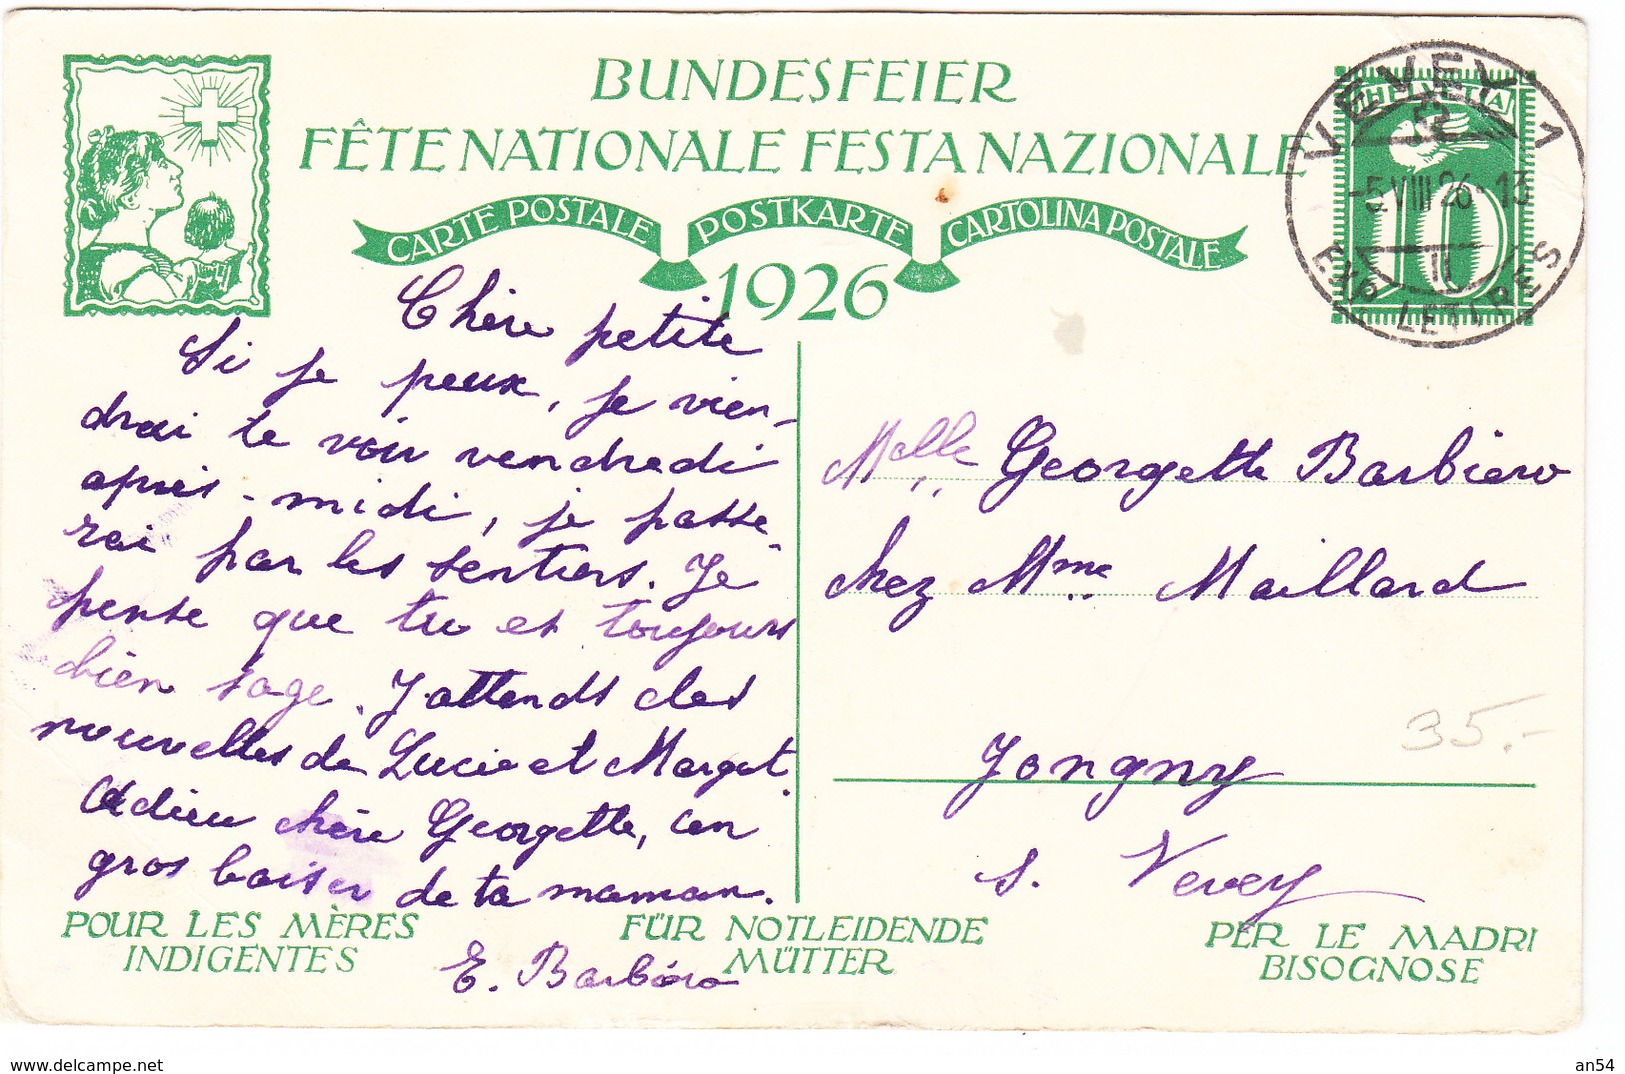 BUNDESFEIER
FÊTE NATIONALE FESTA NAZIONALE
CARTE POSTALE POSTKARTE CARTOLINA POSTALE
1926
HELVETIA
10
VEVEY 1
-5.VIII.26-13
II
EXP. LETTRES
Chère petite
Si je peux, je vien-
drai te voir vendredi
après-midi, je passe-
rai par les sentiers. Je
pense que tu es toujours
bien sage. J'attends des
nouvelles de Lucie et Margot.
Adieu chère Georgette, un
gros baiser de ta maman.
E. Barbéro
Melle Georgette Barbiero
chez Mme Maillard
Jongny
s. Vevey
35.-
POUR LES MÈRES
INDIGENTES
FÜR NOTLEIDENDE
MÜTTER
PER LE MADRI
BISOGNOSE
www.delcampe.net
an54